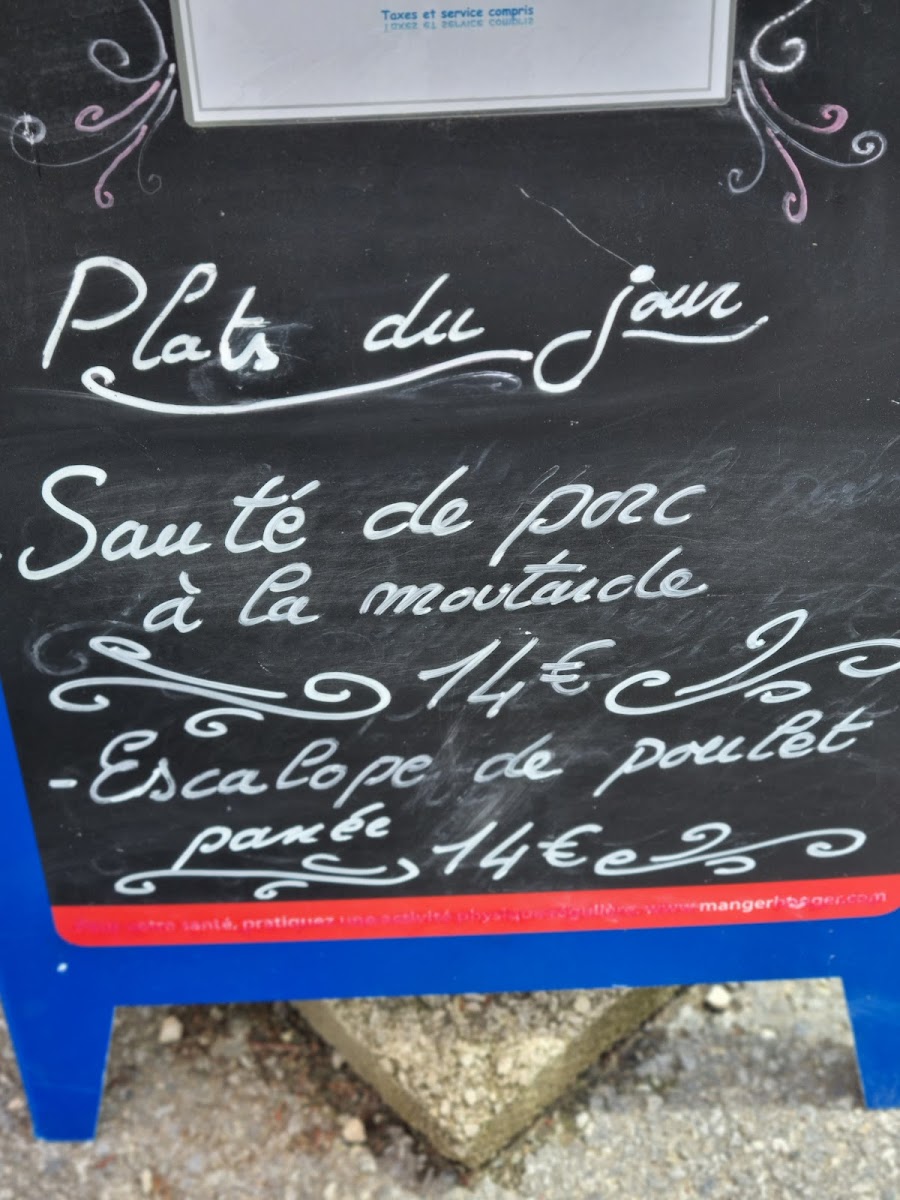 Taxes et service compris
Plats du jour
Sauté de porc
à la moutarde
14€
- Escalope de poulet
panée 14€
Pour votre santé, pratiquez une activité physique régulière. www.mangerbouger.com